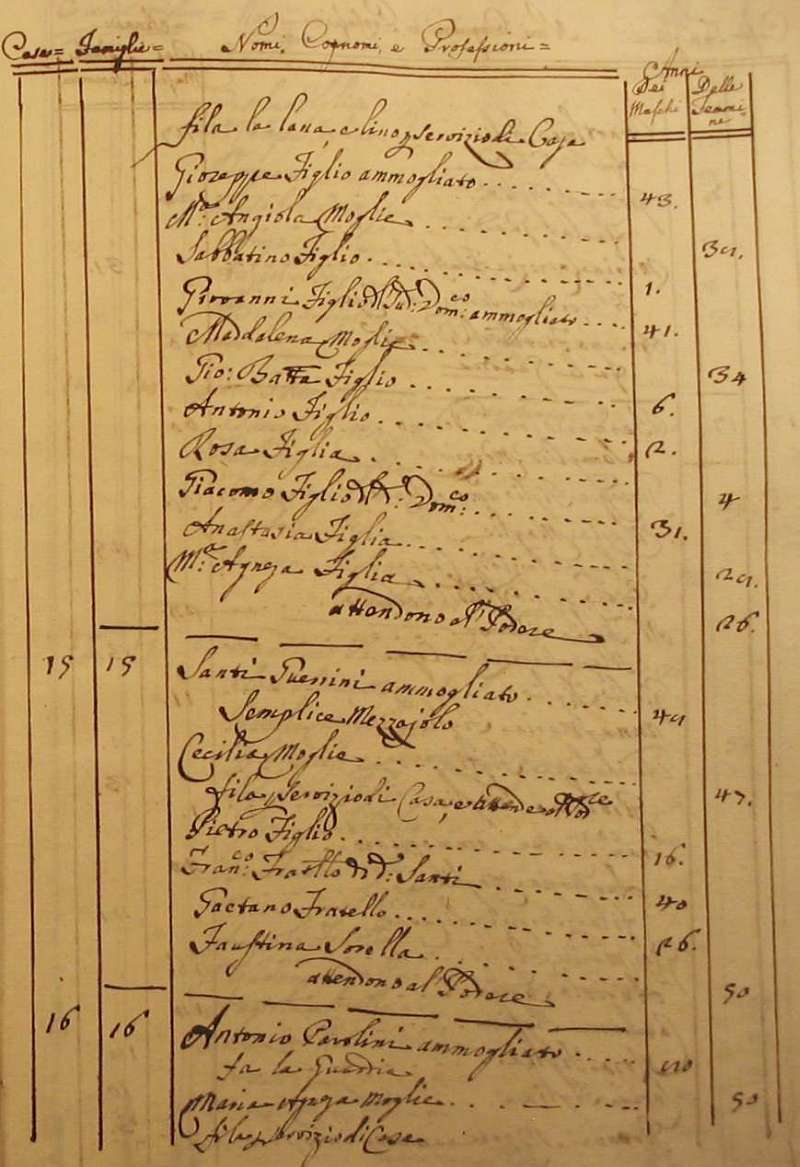 Case= Famiglie= Nomi, Cognomi, e Professioni= Anni
Dei Maschi Delle Femine
fila la lana, e lino, e servizio di Casa
Gioseppe Figlio ammogliato 43.
M.a Angiola Moglie 39.
Sabbatino Figlio 1.
Giovanni Figlio del fu: Dom.co: ammogliato 41.
Maddalena Moglie 34
Gio: Batta Figlio 6.
Antonio Figlio 2.
Rosa Figlia 4
Giacomo Figlio del fu: Dom.co: 31.
Anastasia Figlia 29.
M.a Agnesa Figlia 26.
attendono al Podere
15 15 Santi Guerrini ammogliato 49
Semplice Mezzajolo
Cecilia Moglie 47.
fila, servizio di Casa, e attende al Podere
Pietro Figlio 16.
Fran.co: Fratello di d.: Santi 40
Gaetano Fratello 26.
Faustina Sorella 50
attendono al Podere
16 16 Antonio Parolini ammogliato
fa la Guardia
Maria Agnesa Moglie 50
fila, servizio di Casa